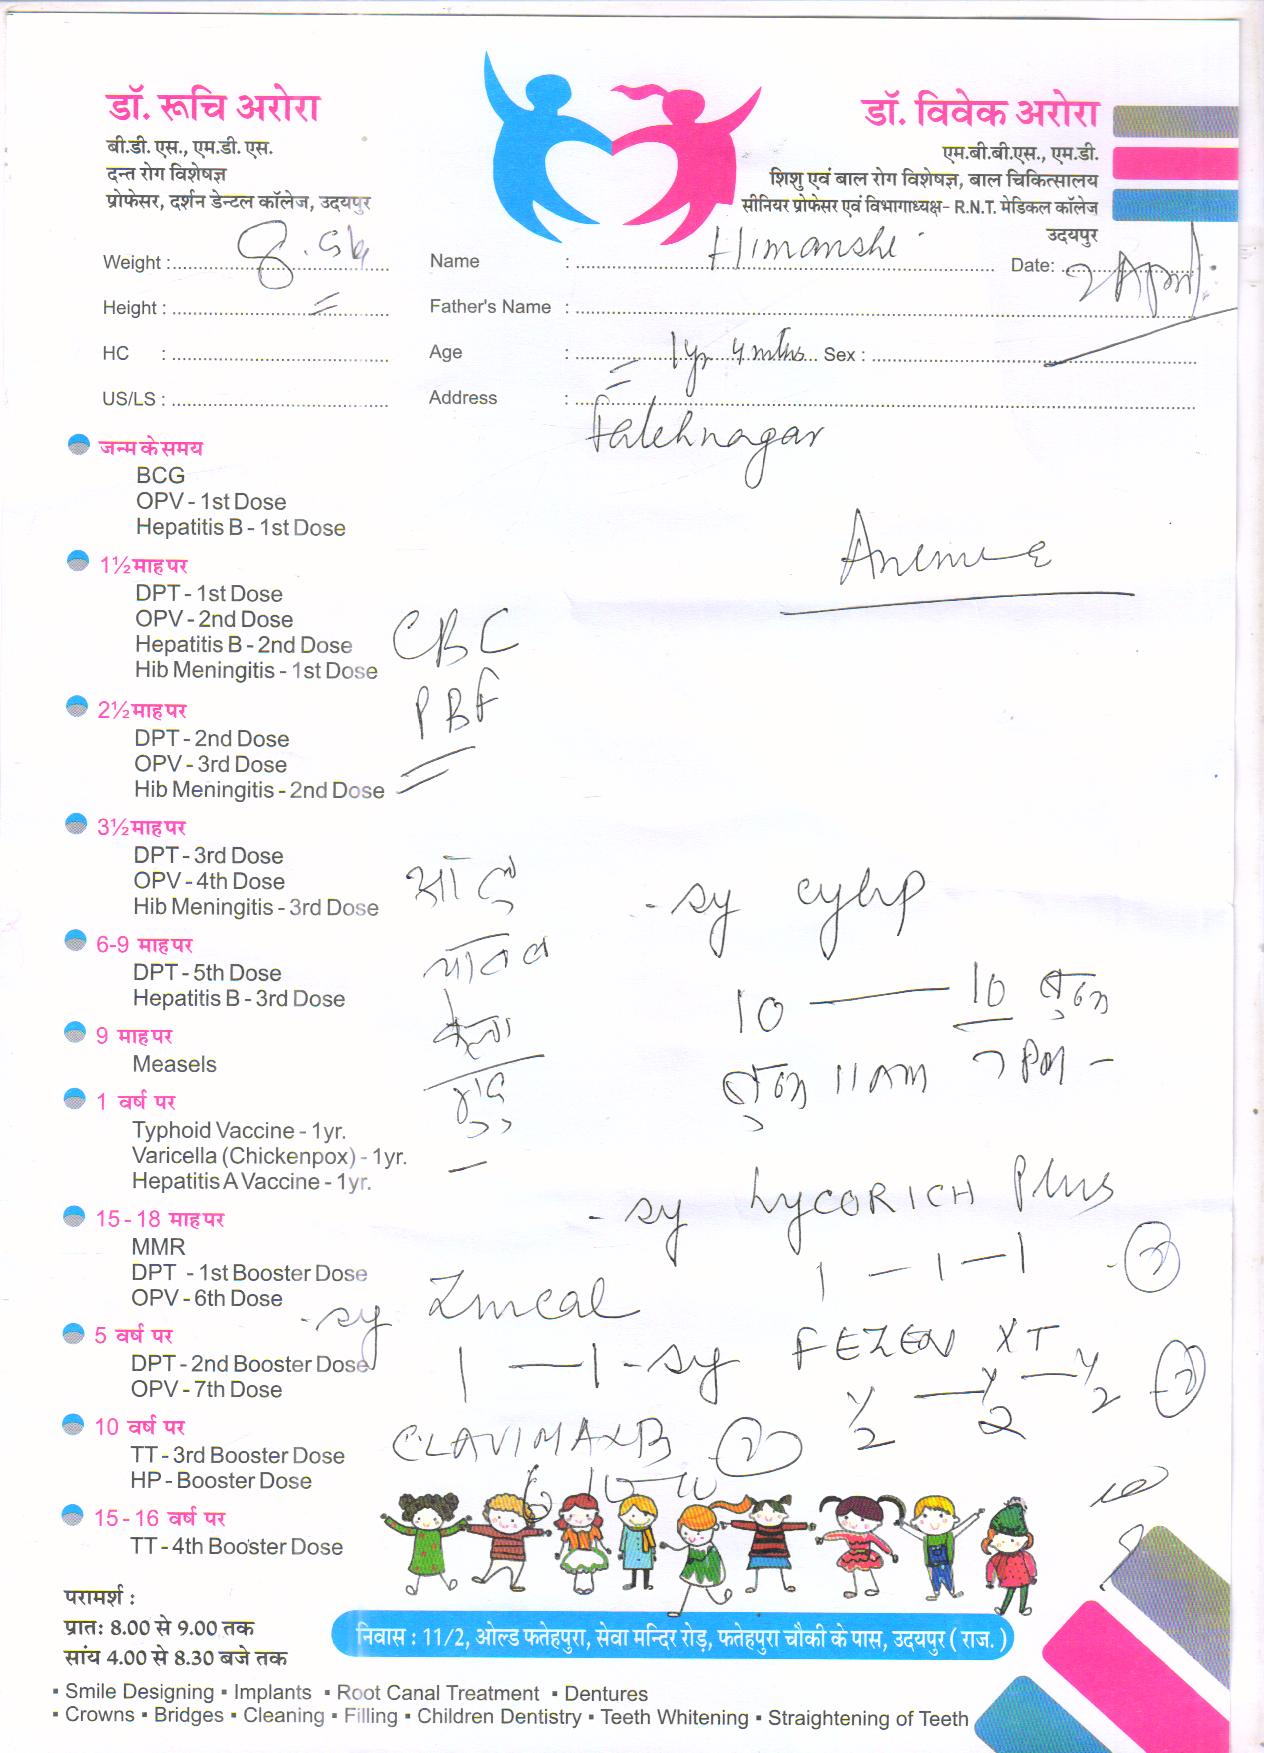 डॉ. रूचि अरोरा
बी.डी. एस., एम.डी. एस.
दन्त रोग विशेषज्ञ
प्रोफेसर, दर्शन डेन्टल कॉलेज, उदयपुर
डॉ. विवेक अरोरा
एम.बी.बी.एस., एम.डी.
शिशु एवं बाल रोग विशेषज्ञ, बाल चिकित्सालय
सीनियर प्रोफेसर एवं विभागाध्यक्ष- R.N.T. मेडिकल कॉलेज
उदयपुर
Weight : 8.5kg Name : Himanshi Date: 2 April
Height : Father's Name :
HC : Age : 1yr 4 mths Sex :
US/LS : Address :
Fatehnagar
जन्म के समय
BCG
OPV - 1st Dose
Hepatitis B - 1st Dose
Anemia
1½ माह पर
DPT - 1st Dose
OPV - 2nd Dose
Hepatitis B - 2nd Dose
Hib Meningitis - 1st Dose
CBC
PBF
2½ माह पर
DPT - 2nd Dose
OPV - 3rd Dose
Hib Meningitis - 2nd Dose
3½ माह पर
DPT - 3rd Dose
OPV - 4th Dose
Hib Meningitis - 3rd Dose
आलु
sy
6-9 माह पर
DPT - 5th Dose
Hepatitis B - 3rd Dose
केला
10 — 10 बुन्द
9 माह पर
Measels
बुन्द 11 AM 7 PM -
1 वर्ष पर
Typhoid Vaccine - 1yr.
Varicella (Chickenpox) - 1yr.
Hepatitis A Vaccine - 1yr.
- sy LYCORICH Plus
1 — 1 — 1
15 - 18 माह पर
MMR
DPT - 1st Booster Dose
OPV - 6th Dose
- sy Zincal
1 — 1
- sy FEZEN XT
½ — ½ — ½
5 वर्ष पर
DPT - 2nd Booster Dose
OPV - 7th Dose
10 वर्ष पर
TT - 3rd Booster Dose
HP - Booster Dose
CLAVIMAX B
15 - 16 वर्ष पर
TT - 4th Booster Dose
परामर्श :
प्रातः 8.00 से 9.00 तक
सांय 4.00 से 8.30 बजे तक
निवास : 11/2, ओल्ड फतेहपुरा, सेवा मन्दिर रोड़, फतेहपुरा चौकी के पास, उदयपुर ( राज. )
▪ Smile Designing ▪ Implants ▪ Root Canal Treatment ▪ Dentures
▪ Crowns ▪ Bridges ▪ Cleaning ▪ Filling ▪ Children Dentistry ▪ Teeth Whitening ▪ Straightening of Teeth